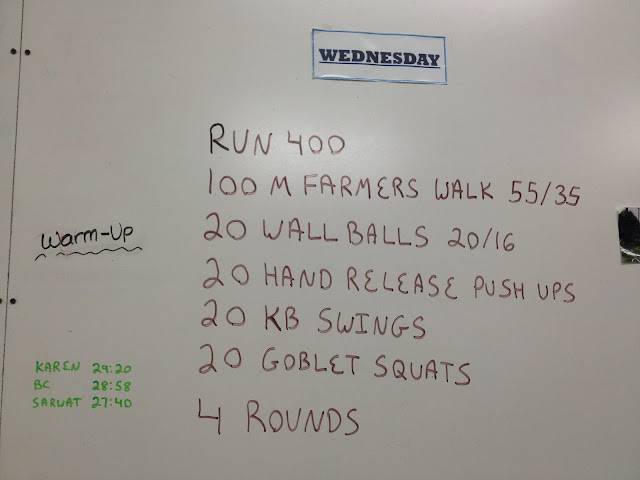 WEDNESDAY
RUN 400
100 M FARMERS WALK 55/35
20 WALL BALLS 20/16
20 HAND RELEASE PUSH UPS
20 KB SWINGS
20 GOBLET SQUATS
4 ROUNDS
Warm-Up
KAREN 29:20
BC 28:58
SARWAT 27:40